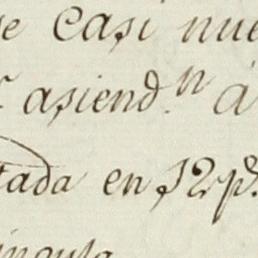 se casi nue
asiend.n á
tada en 12 p.